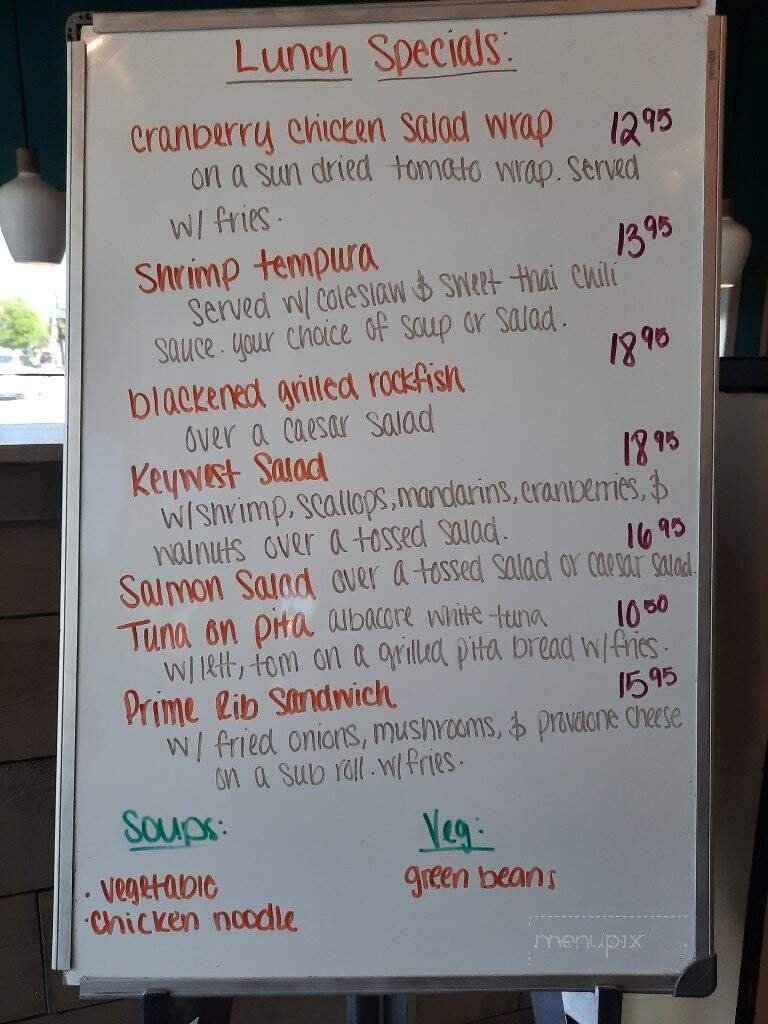 Lunch Specials:
cranberry chicken salad wrap 12 95
on a sun dried tomato wrap. Served
w/ fries.
Shrimp tempura 13 95
Served w/ coleslaw & sweet thai chili
sauce. your choice of soup or salad.
blackened grilled rockfish 18 95
over a caesar salad
Keywest Salad 18 95
w/shrimp, scallops, mandarins, cranberries, &
walnuts over a tossed salad.
Salmon Salad over a tossed salad or caesar salad. 16 95
Tuna on pita albacore white tuna 10 50
w/lett, tom on a grilled pita bread w/fries.
Prime Rib Sandwich 15 95
w/ fried onions, mushrooms, & provolone cheese
on a sub roll. w/fries.
Soups: Veg:
· vegetable green beans
· chicken noodle
menupix